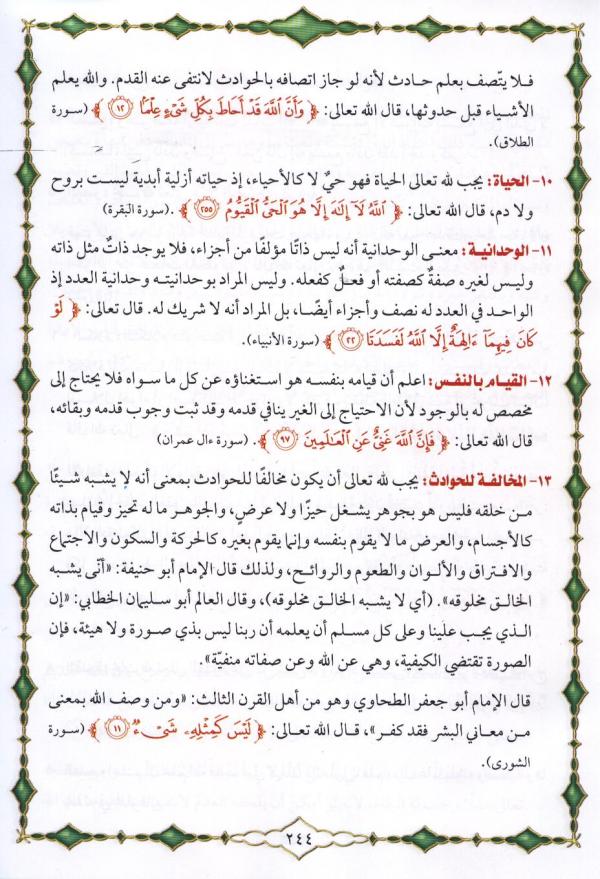 فـلا يتّصف بعلم حـادث لأنه لو جاز اتصافه بالحوادث لانتفى عنه القدم. والله يعلم
الأشياء قبل حدوثها، قال الله تعالى: ﴿ وَأَنَّ ٱللَّهَ قَدْ أَحَاطَ بِكُلِّ شَىْءٍ عِلْمًۢا ۝١٢ ﴾ (سورة
الطلاق).
١٠- الحياة: يجب لله تعالى الحياة فهو حيٌّ لا كالأحياء، إذ حياته أزلية أبدية ليست بروح
ولا دم، قال الله تعالى: ﴿ ٱللَّهُ لَآ إِلَٰهَ إِلَّا هُوَ ٱلْحَىُّ ٱلْقَيُّومُ ۝٢٥٥ ﴾. (سورة البقرة)
١١- الوحدانية: معنى الوحدانية أنه ليس ذاتًا مؤلفًا من أجزاء، فلا يوجد ذاتٌ مثل ذاته
وليس لغيره صفةٌ كصفته أو فعلٌ كفعله. وليس المراد بوحدانيته وحدانية العدد إذ
الواحد في العدد له نصف وأجزاء أيضًا، بل المراد أنه لا شريك له. قال تعالى: ﴿ لَوْ
كَانَ فِيهِمَآ ءَالِهَةٌ إِلَّا ٱللَّهُ لَفَسَدَتَا ۝٢٢ ﴾ (سورة الأنبياء).
١٢- القيام بالنفس: اعلم أن قيامه بنفسه هو استغناؤه عن كل ما سواه فلا يحتاج إلى
مخصص له بالوجود لأن الاحتياج إلى الغير ينافي قدمه وقد ثبت وجوب قدمه وبقائه،
قال الله تعالى: ﴿ فَإِنَّ ٱللَّهَ غَنِىٌّ عَنِ ٱلْعَٰلَمِينَ ۝٩٧ ﴾. (سورة ءال عمران)
١٣- المخالفة للحوادث: يجب لله تعالى أن يكون مخالفًا للحوادث بمعنى أنه لا يشبه شيئًا
من خلقه فليس هو بجوهر يشغل حيزًا ولا عرضٍ، والجوهر ما له تحيز وقيام بذاته
كالأجسام، والعرض ما لا يقوم بنفسه وإنما يقوم بغيره كالحركة والسكون والاجتماع
والافتراق والألوان والطعوم والروائح، ولذلك قال الإمام أبو حنيفة: «أنّى يشبه
الخالق مخلوقه». (أي لا يشبه الخالق مخلوقه)، وقال العالم أبو سليمان الخطابي: «إن
الذي يجب علينا وعلى كل مسلم أن يعلمه أن ربنا ليس بذي صورة ولا هيئة، فإن
الصورة تقتضي الكيفية، وهي عن الله وعن صفاته منفيّة».
قال الإمام أبو جعفر الطحاوي وهو من أهل القرن الثالث: «ومن وصف الله بمعنى
من معاني البشر فقد كفر»، قال الله تعالى: ﴿ لَيْسَ كَمِثْلِهِۦ شَىْءٌ ۝١١ ﴾ (سورة
الشورى).
٢٤٤